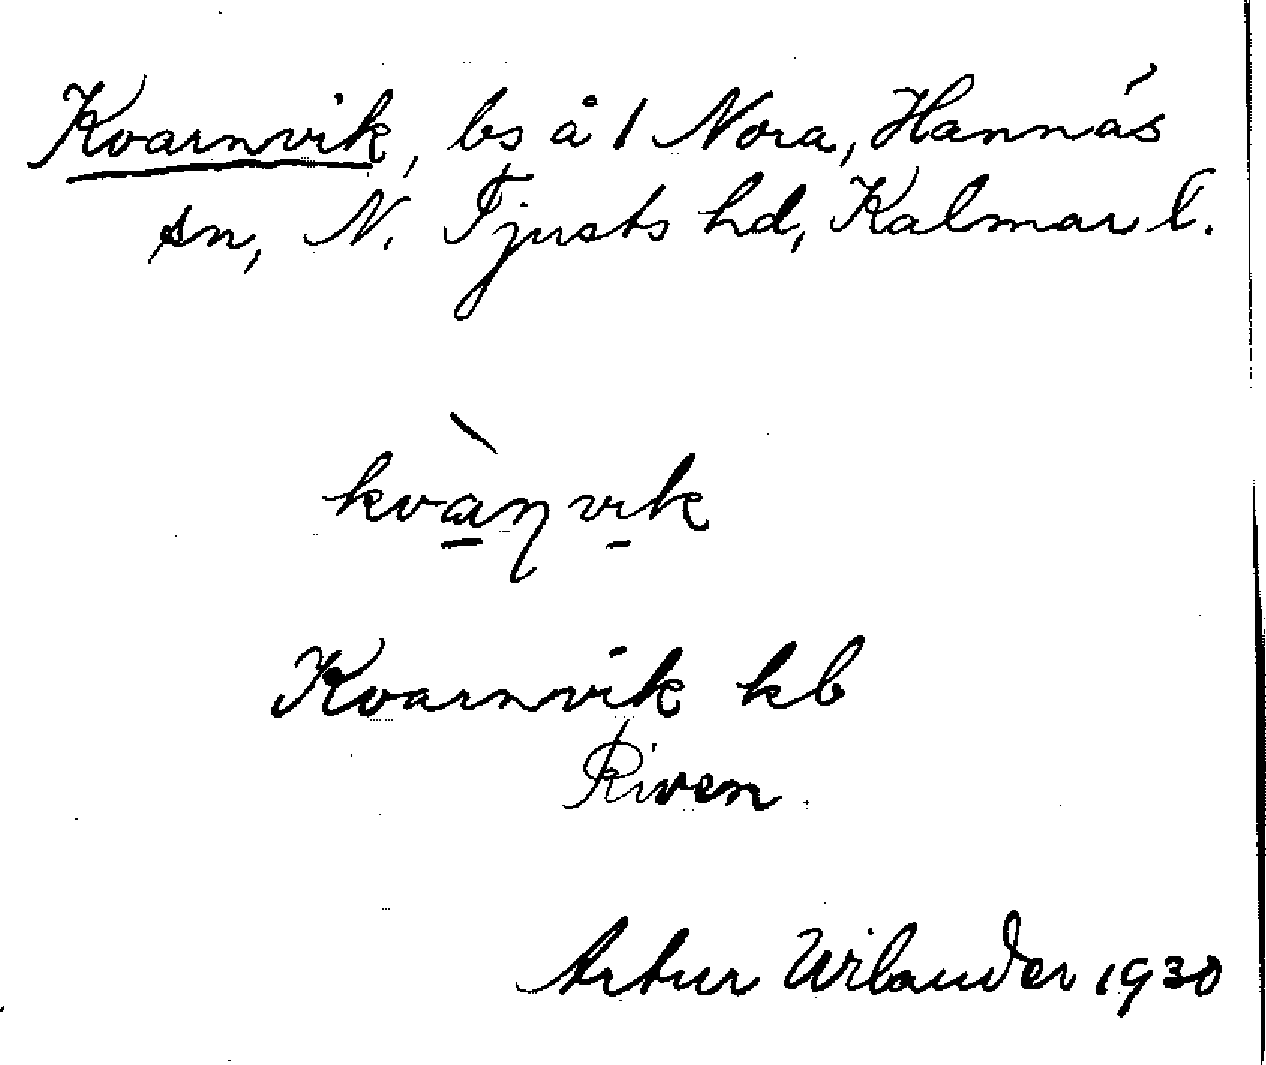 Kvarnvik, bs å 1 Nora, Hannäs
sn, N. Tjusts hd, Kalmar l.
kvàɳvik
Kvarnvik kb
Riven
Artur Wilander 1930